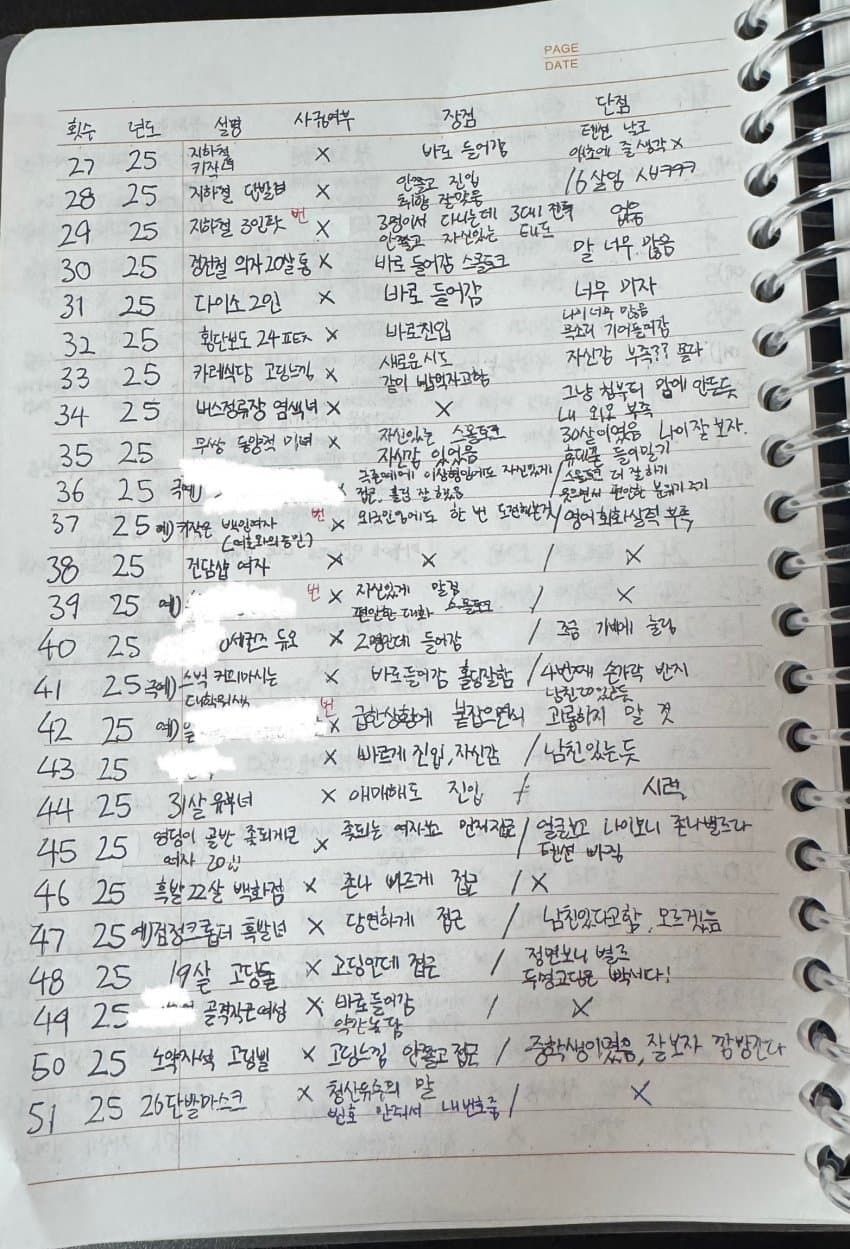 PAGE
DATE
횟수 년도 설명 사귐여부 장점 단점
27 25 지하철 키작녀 X 바로 들어감 텐션 낮고 애초에 줄생각X
28 25 지하철 단발녀 X 안쫄고 진입 취향 잘맞음 16살임 ㅅㅂㅋㅋㅋ
29 25 지하철 3인팟 번 X 3명이서 다니는데 3대1 전투 안쫄고 자신있는 태도 없음
30 25 의자 20살 통 X 바로 들어감 스몰토크 말 너무 많음
31 25 다이소 2인 X 바로 들어감 너무
32 25 횡단보도 24 X 바로진입 나이 너무 많음 목소리 기어들어감
33 25 카레식당 고딩느낌 X 새로운시도 같이 밥먹자고함 자신감 부족?? 몰라
34 25 버스정류장 염색녀 X X 그냥 첨부터 맘에 안든듯 내 외모 부족
35 25 무쌍 동양적 미녀 X 자신있는 스몰토크 자신감 있었음 30살이였음 나이 잘 보자.
36 25 극예) X 극존예에 이상형임에도 자신있게 접근, 플러팅 잘 했음 / 휴대폰 들이밀기 스몰토크 더 잘하기 웃으면서 편안한 분위기 주기
37 25 예) 키작은 백인여자 번 X 외국인임에도 한 번 도전해본것 / 영어회화실력 부족
38 25 전담샵 여자 X X / X
39 25 예) 번 X 자신있게 말검 편안한 대화 스몰토크 / X
40 25 듀오 X 2명인데 들어감 / 조금 기빡에 눌림
41 25 극예) 스벅 커피마시는 대학원생 X 바로들어감 잘함 / 4번째 손가락 반지 남친 있는듯
42 25 예) 을 번 X 급한상황에 붙잡으면서 괴롭히지 말 것
43 25 X 빠르게 진입, 자신감 / 남친있는듯
44 25 31살 유부녀 X 애매해도 진입 / 시력
45 25 엉덩이 골반 좆되게큰 여자 20 X 좆되는 여자보고 먼저접근 / 얼굴보고 나이보니 존나별로다 텐션 빠짐
46 25 흑발 22살 백화점 X 존나 빠르게 접근 / X
47 25 예) 검정크롭티 흑발녀 X 당연하게 접근 / 남친있다고함, 모르겠음
48 25 19살 고딩둘 X 고딩인데 접근 / 정면보니 별로 두명고딩은 빡세다!
49 25 골격작은여성 X 바로들어감 약간농담 / X
50 25 노약자석 고딩삘 X 고딩느낌 안쫄고접근 / 중학생이였음, 잘보자 깜방간다
51 25 26단발마스크 X 청산유수의 말 번호 안줘서 내번호줌 / X